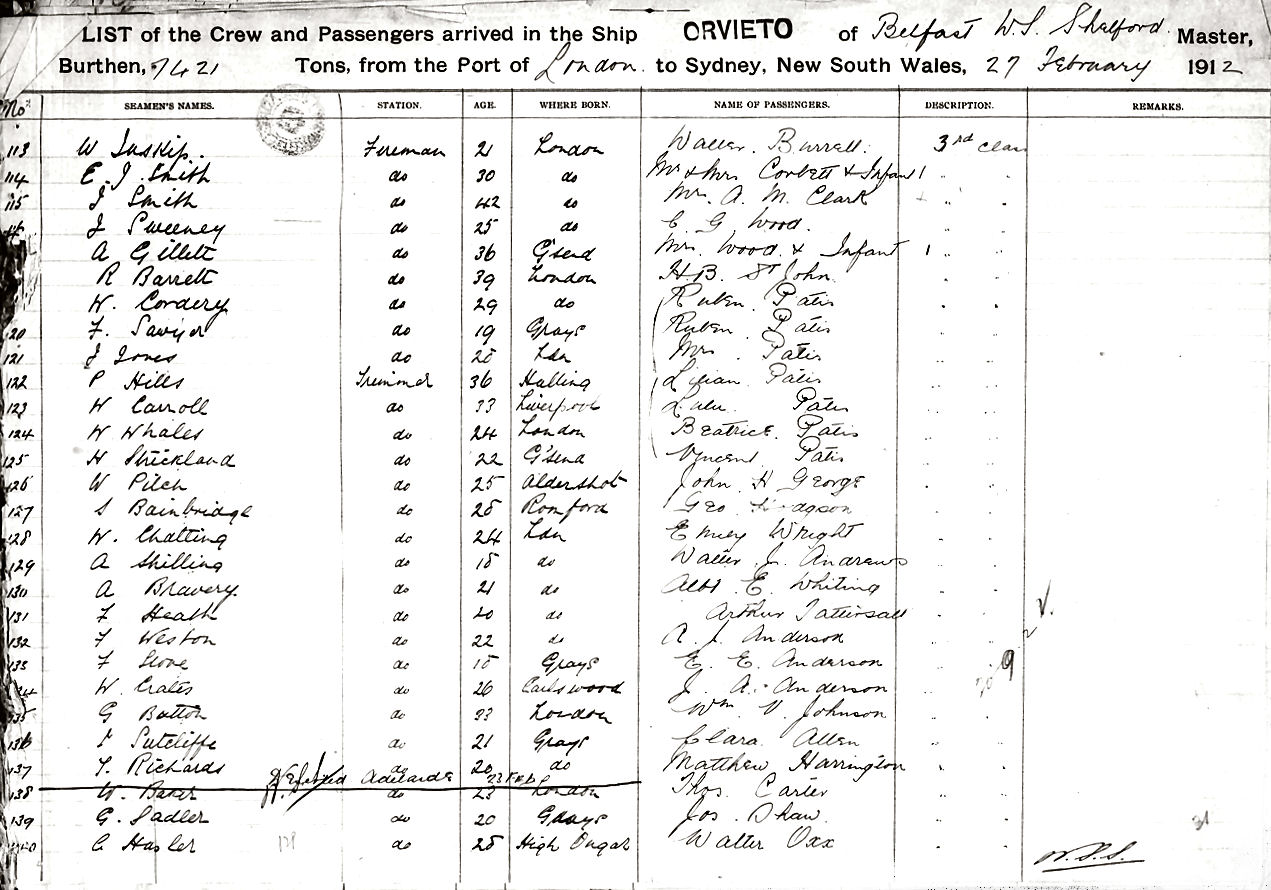 LIST of the Crew and Passengers arrived in the Ship ORVIETO of Belfast W. S. Shelford. Master,
Burthen, 7421 Tons, from the Port of London. to Sydney, New South Wales, 27 February 1912
No. SEAMEN'S NAMES. STATION. AGE. WHERE BORN. NAME OF PASSENGERS. DESCRIPTION. REMARKS.
113 W Inskip. Fireman 21 London Walter Burrell. 3rd class
114 E. J. Smith do 30 do Mr & Mrs Corbett & Infant 1
115 J Smith do 42 do Mrs. A. M. Clark
J Sweeney do 25 do C G Wood.
A Gillett do 36 G'send Mrs Wood & Infant 1
R Barrett do 39 London H.B. St John.
W. Cordery do 29 do Ruben. Patis
20 F. Sawyer do 19 Grays Ruben. Patis
121 J Jones do 28 Ldn Mrs. Patis
122 P Hills Trimmer 36 Halling Lilian. Patis
123 W Carroll do 33 Liverpool Lulu. Patis
124 W Whales do 24 London Beatrice. Patis
125 H Strickland do 22 G'send Vincent Patis
126 W Pilch do 25 Aldershot John H George
127 S Bainbridge do 28 Romford Geo
128 W. Chatting do 24 Ldn Emily Wright
129 A Shilling do 18 do Walter J. Andrews
130 A Bravery do 21 do Albt E. Whiting
131 F Heath do 40 do Arthur Tattersall
132 F Weston do 22 do A. J. Anderson
133 F Stone do 18 Grays E. E. Anderson 9
W. Crates do 26 J. A. Anderson
G Button do 33 London Wm V. Johnson
136 Sutcliffe do 21 Grays Clara Allen
137 T. Richards do 20 do Matthew Harrington
Adelaide 23 Feb
138 W. Baker do 23 London Thos. Carter
139 G. Sadler do 20 Grays Jos. Shaw.
140 C Hasler do 28 High Ongar Walter Oxx
W.S.S.